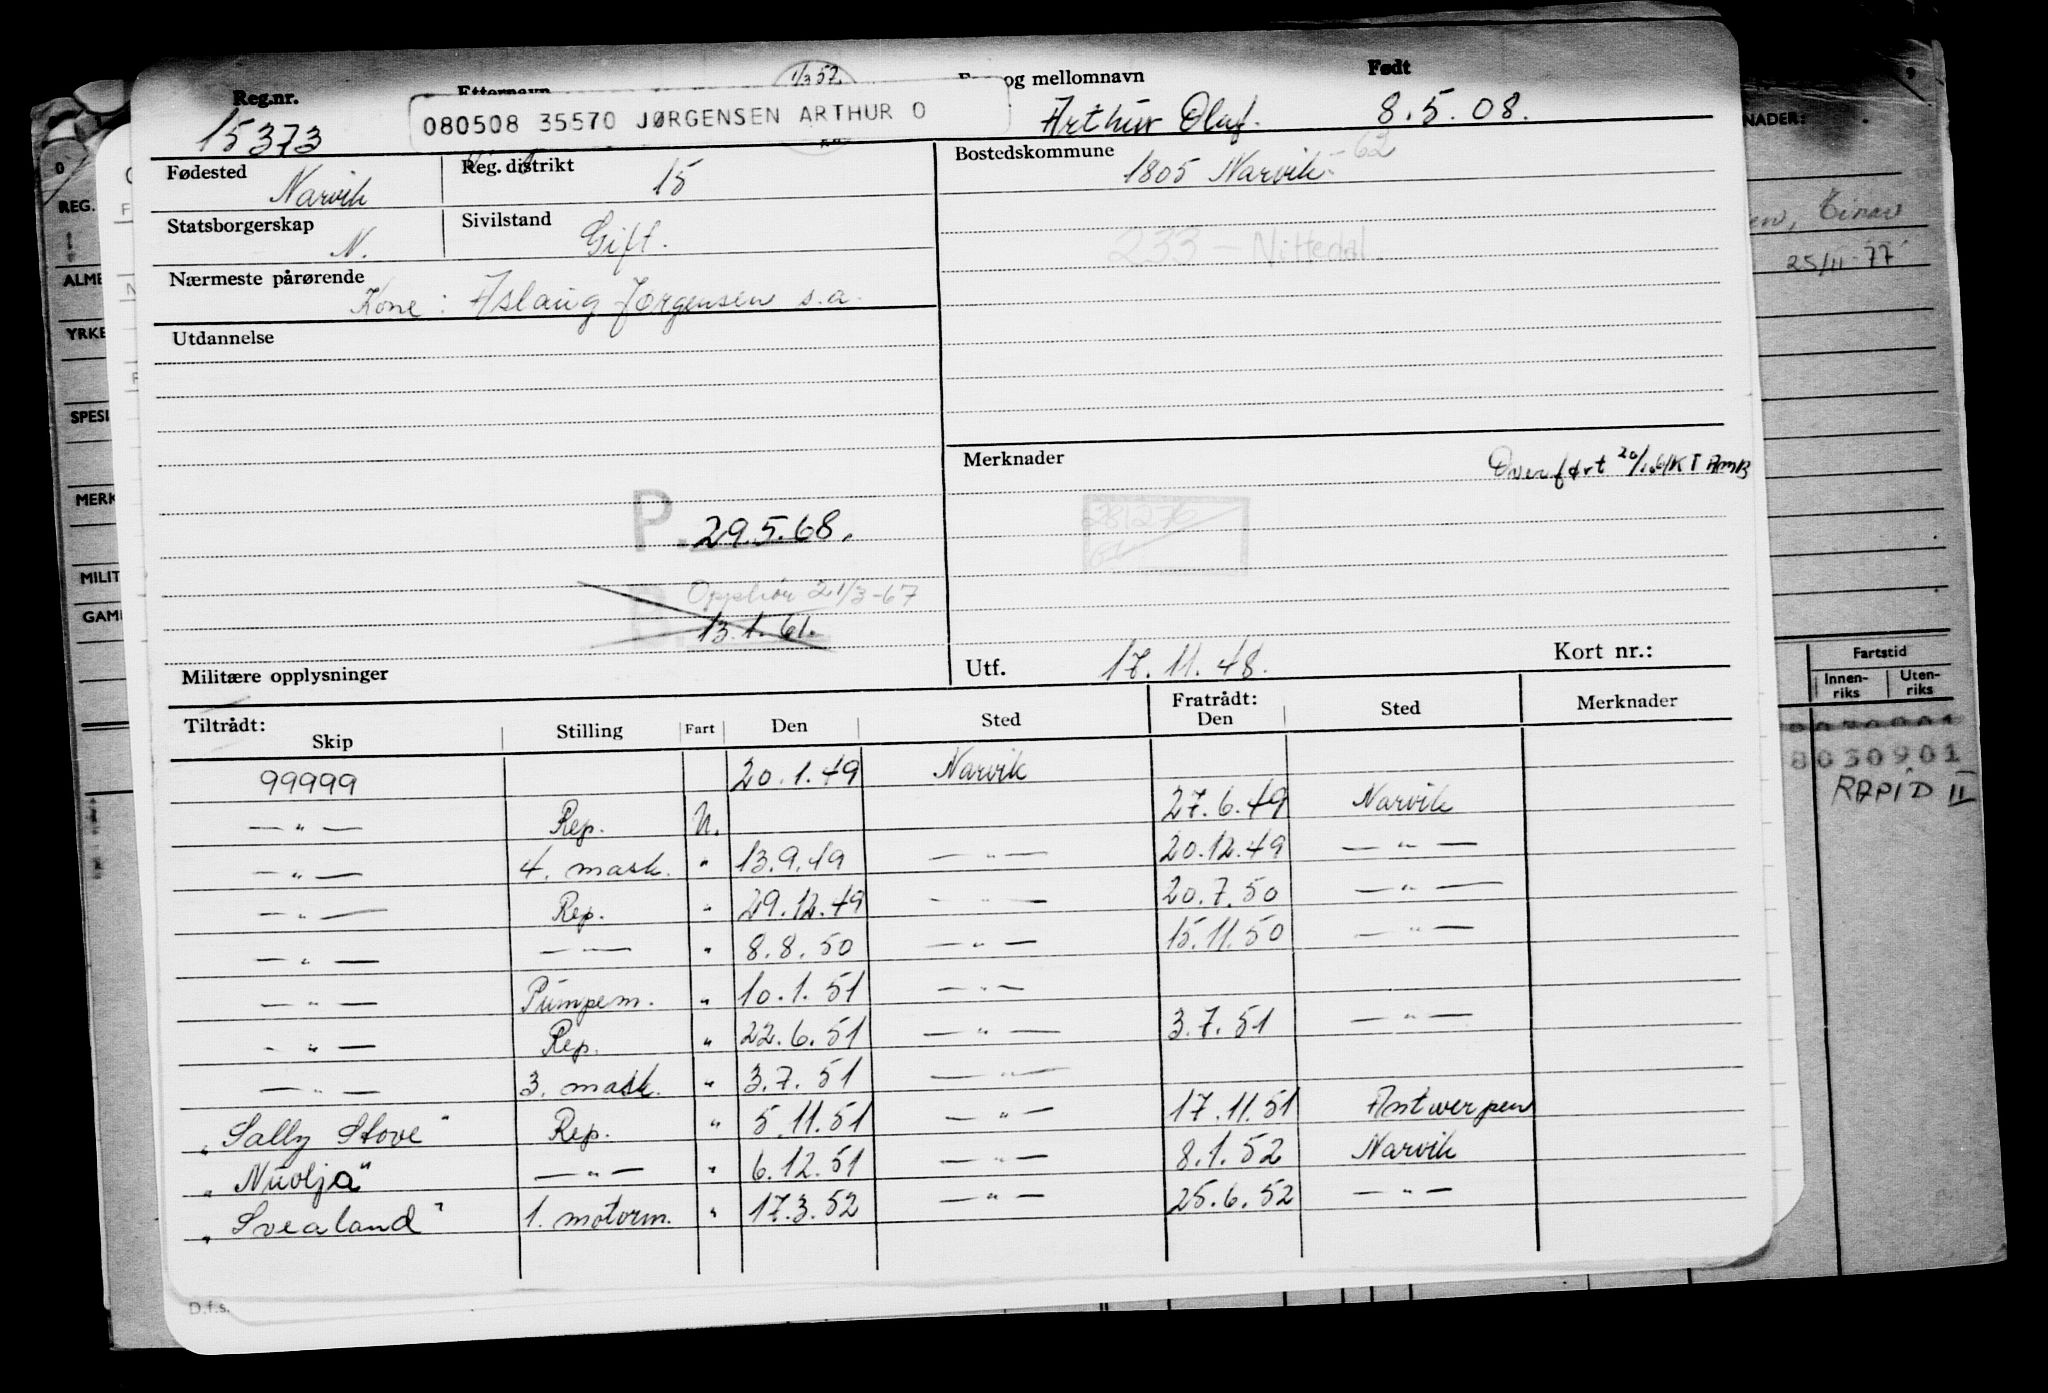 Reg.nr. Etternavn 1/3 57. For- og mellomnavn Født
15373 080508 35570 JØRGENSEN ARTHUR O Arthur Olaf. 8.5.08.
Fødested Narvik Reg. distrikt 15 Bostedskommune 1805 Narvik -62
Statsborgerskap N. Sivilstand Gift. 233 - Nittedal.
Nærmeste pårørende
Kone: Aslaug Jørgensen s.a.
Utdannelse
Merknader Overført
P. 29.5.68. 281276
Opphør 21/3-67
13.1.61.
Militære opplysninger Utf. 17.11.48. Kort nr.:
Tiltrådt: Fratrådt:
Skip Stilling Fart Den Sted Den Sted Merknader
99999 20.1.49 Narvik
— " — Rep. N. 27.6.49 Narvik
— " — 4. mask. " 13.9.49 — " — 20.12.49 — " —
— " — Rep. " 29.12.49 — " — 20.7.50 — " —
— " — — " — " 8.8.50 — " — 15.11.50 — " —
— " — Pumpem. " 10.1.51 — " —
— " — Rep. " 22.6.51 — " — 3.7.51 — " —
— " — 3. mask. " 3.7.51 — " —
"Sally Stove" Rep. " 5.11.51 — " — 17.11.51 Antwerpen
"Nuolja" — " — " 6.12.51 — " — 8.1.52 Narvik
"Svealand" 1. motorm. " 17.3.52 — " — 25.6.52 — " —
D.f.s.
REG.
ALME
YRKE
SPESI
MERK
MILIT
GAML
NADER:
Einar
25/11-77
Fartstid
Innen-riks Uten-riks
8030901
RAPID II